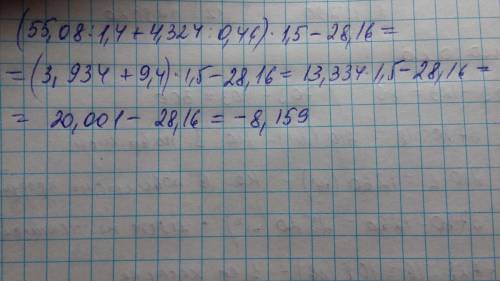 (55,08:1,4+4,324:0,46)·1,5-28,16=
=(3,934+9,4)·1,5-28,16=13,334·1,5-28,16=
= 20,001-28,16=-8,159